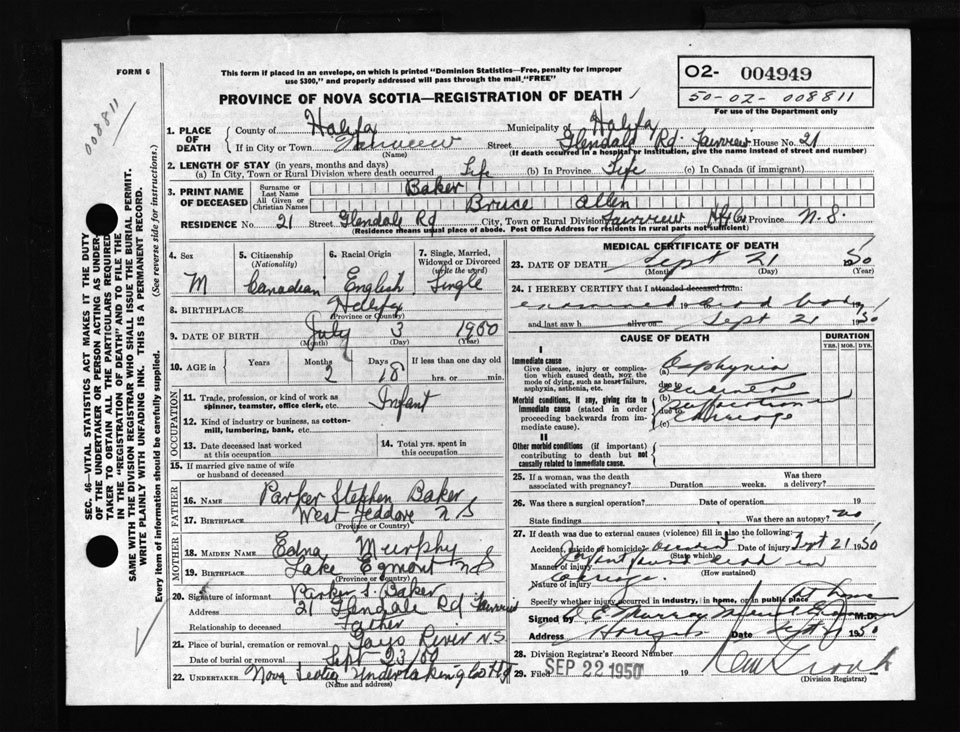 FORM 6
This form if placed in an envelope, on which is printed "Dominion Statistics—Free, penalty for improper
use $300," and properly addressed will pass through the mail "FREE"
O2- 004949
50-02- 008811
For use of the Department only
008811
PROVINCE OF NOVA SCOTIA—REGISTRATION OF DEATH
1. PLACE OF DEATH
County of Halifax Municipality of Halifax
If in City or Town Fairview Street Glendale Rd. Fairview House No. 21
(Name) (If death occurred in a hospital or institution, give the name instead of street and number)
2. LENGTH OF STAY (in years, months and days)
(a) In City, Town or Rural Division where death occurred Life (b) In Province Life (c) In Canada (if immigrant)
3. PRINT NAME OF DECEASED
Surname or Last Name Baker
All Given or Christian Names Bruce Allen
RESIDENCE No. 21 Street Glendale Rd City, Town or Rural Division Fairview Hfx Co Province N.S.
(Residence means usual place of abode. Post Office Address for residents in rural parts not sufficient)
4. Sex M
5. Citizenship (Nationality) Canadian
6. Racial Origin English
7. Single, Married, Widowed or Divorced (write the word) Single
8. BIRTHPLACE Halifax
(Province or Country)
9. DATE OF BIRTH July 3 1950
(Month) (Day) (Year)
10. AGE in Years Months 2 Days 18 If less than one day old hrs. or min.
OCCUPATION
11. Trade, profession, or kind of work as spinner, teamster, office clerk, etc. Infant
12. Kind of industry or business, as cotton-mill, lumbering, bank, etc.
13. Date deceased last worked at this occupation
14. Total yrs. spent in this occupation
15. If married give name of wife or husband of deceased
FATHER
16. NAME Parker Stephen Baker
17. BIRTHPLACE West Jeddore N S
(Province or Country)
MOTHER
18. MAIDEN NAME Edna Murphy
19. BIRTHPLACE Lake Egmont N S
(Province or Country)
20. Signature of informant Parker S. Baker
Address 21 Glendale Rd Fairview
Relationship to deceased Father
21. Place of burial, cremation or removal Gays River N.S.
Date of burial or removal Sept 23 50
22. UNDERTAKER Nova Scotia Undertaking Co Hfx
(Name and address)
MEDICAL CERTIFICATE OF DEATH
23. DATE OF DEATH Sept 21 50
(Month) (Day) (Year)
24. I HEREBY CERTIFY that I attended deceased from:
examined dead body
and last saw h alive on Sept 21 1950
CAUSE OF DEATH
DURATION
YRS. MOS. DYS.
I
Immediate cause
Give disease, injury or complication which caused death, NOT the mode of dying, such as heart failure, asphyxia, asthenia, etc.
(a) Asphyxia
due to
Morbid conditions, if any, giving rise to immediate cause (stated in order proceeding backwards from immediate cause).
(b)
due to
(c) carriage
II
Other morbid conditions (if important) contributing to death but not causally related to immediate cause.
25. If a woman, was the death associated with pregnancy? Duration weeks. Was there a delivery?
26. Was there a surgical operation? Date of operation 19
State findings Was there an autopsy? no
27. If death was due to external causes (violence) fill in also the following:
Accident, suicide or homicide? accident Date of injury Sept 21 1950
(State which)
Manner of injury Infant found dead in
(How sustained)
Nature of injury carriage.
Specify whether injury occurred in industry, in home, or in public place at home
Signed by M.D.
Address Date Sept 1950
28. Division Registrar's Record Number
29. Filed SEP 22 1950 19
(Division Registrar)
SEC. 46—VITAL STATISTICS ACT MAKES IT THE DUTY
OF THE UNDERTAKER OR PERSON ACTING AS UNDER-
TAKER TO OBTAIN ALL THE PARTICULARS REQUIRED
IN THE "REGISTRATION OF DEATH" AND TO FILE THE
SAME WITH THE DIVISION REGISTRAR WHO SHALL ISSUE THE BURIAL PERMIT.
WRITE PLAINLY WITH UNFADING INK. THIS IS A PERMANENT RECORD.
Every item of information should be carefully supplied. (See reverse side for instructions.)